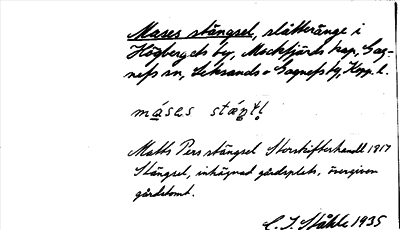 Mases stängsel, slätteränge i
Högbergets by, Mockfjärds kap, Gag-
nefs sn, Leksands o Gagnefs tg, Kpp. l.
Matts Pers stängsel Storskifteshandl 1817
Stängsel, inhägnad gårdsplats, övergiven
gårdstomt.
C. I. Ståhle 1935